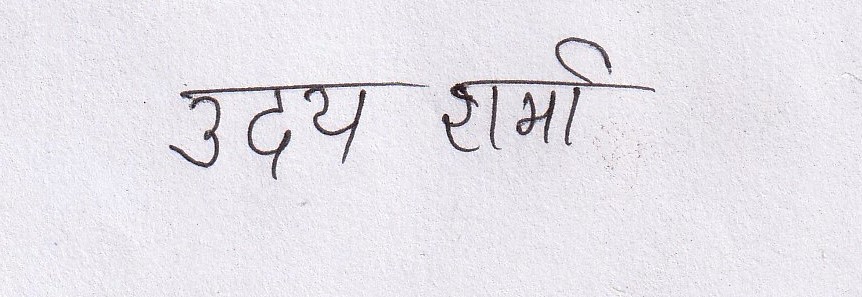 उदय शर्मा